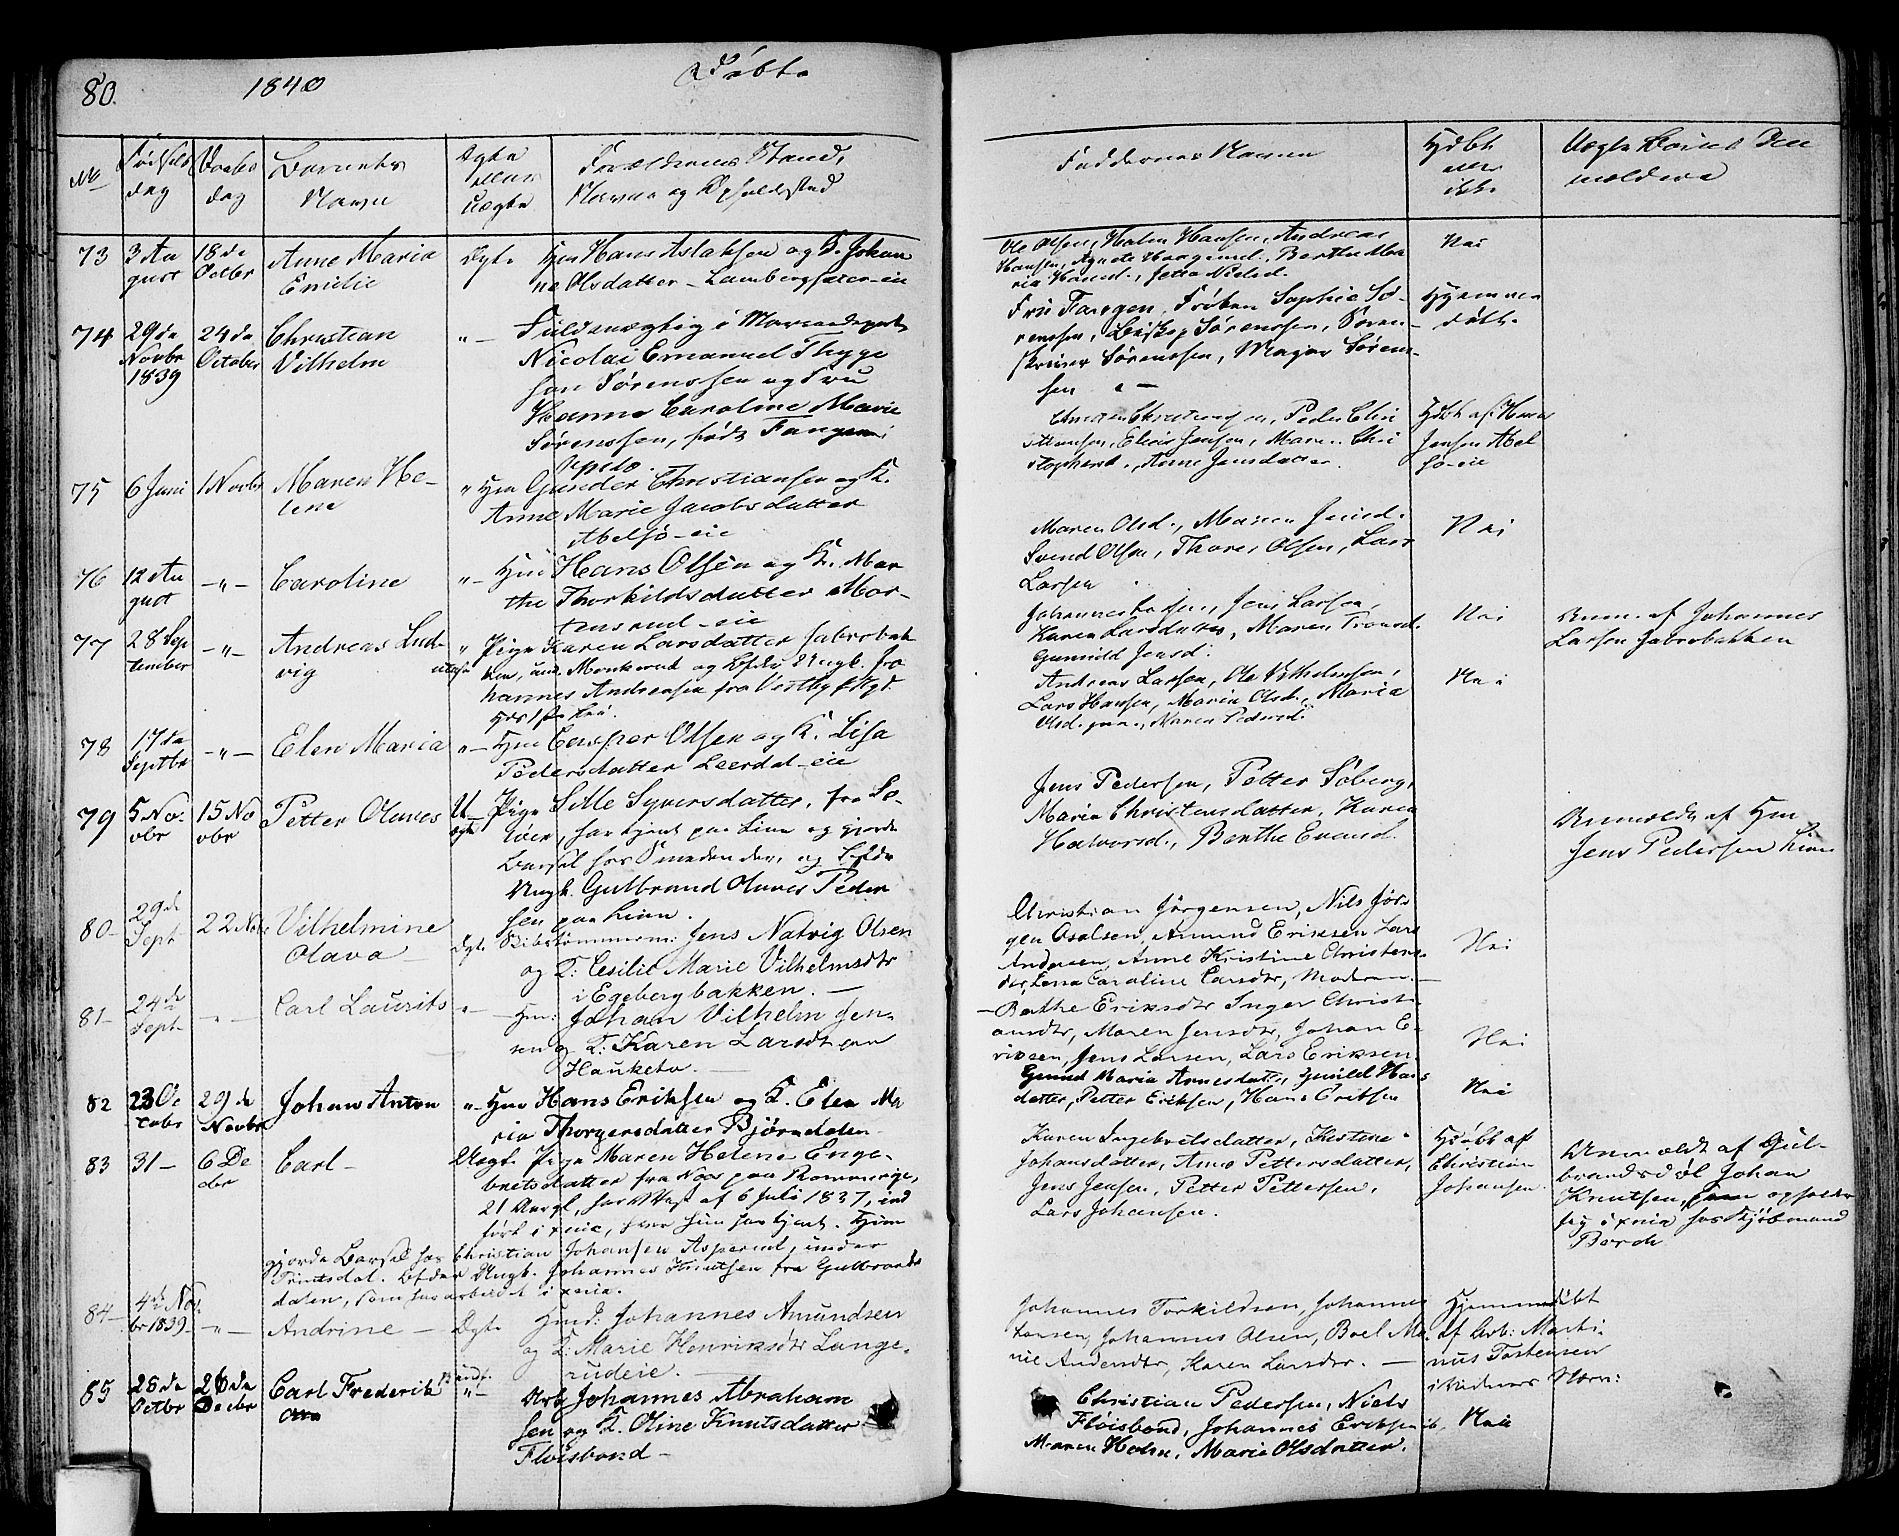 80. 1840 Døbte
No
Fødsels
dag
Daabs
dag
Barnets
Navn
Ægte
eller
Uægte
Forældrenes Stand,
Navne og Opholdsted
Faddernes Navne
Hjdbt
eller
ikke
Uægte Børns
meldere
73 3 Au
gust
18 de
Octbr
Anne Maria
Emilie
Ægte
Hmd Hans Aslaksen og K. Johan
ne Olsdatter Lambergsæter-eie
Ole Olsen, Halm Hansen, Andreas
Hansen, Agnete Haagensd., Berthe Ma
ria Hansd., Jetra Nielsd.
Nei
74 29 de
Novbr
1839
24 de
October
Christian
Vilhelm
" —
Fuldmægtig i
Nicolai Emanuel Thyge
son Sørenssen og Fru
Hanna Caroline Marie
Sørenssen, født Fangen:
Fru Fangen, Frøken Sophie Sø-
renssen, Biskop Sørenssen, Soren-
skriver Sørenssen, Major Sørens-
sen
Hjemme
døbt.
75 6 Juni 1 Novbr Maren He-
lene
" Hm Gunder Christiansen og K.
Anne Marie Jacobsdatter
Abelsø-eie
Christen Christensen, Peder Chri
stiansen, Elias Jensen, Maren Chri
stophersd., Anne Jensdatter
Hjdbt af Hans
Jensen Abel
sø-eie
76 12 Au
gust
—"— Caroline
"— Hm Hans Olsen og K. Mar
the Thorkildsdatter Mor-
tensrud-eie
Maren Olsd., Maren Jensd.
Svend Olsen, Thore Olsen, Lars
Larsen
Nei
77 28 Sep
tember
—"— Andreas Lud-
vig
" Pige Karen Larsdatter Jabrobak
ken, und. Munkerud og Lfdr Ungk. Jo
hannes Andersen fra Vestby Prgt.
Hos 1ste Leie.
Johannes Larsen, Jens Larsen,
Karen Larsdatter, Maren Trondsd.
Gunnild Jensd.
Nei
Anm. af Johannes
Larsen Jabrobakken
78 17 de
Septbr
—"— Elen Maria
"— Hm Casper Olsen og K. Lisa
Pedersdatter Leerdal-eie
Andreas Larsen, Ole Vilhelmsen,
Lars Hansen, Maria Olsd., Maria
Olsd. jun., Maren Pedersd.
Nei
79 5 No-
vbr
15 No
vbr
Petter Olaves
U-
ægte
Pige Sille Syversdatter, fra So-
løer, har tjent paa Lian og gjorde
Barsel hos Smeden der, og Lfdr
Ungk. Gulbrand Olaves Peder
sen paa Lian.
Jens Pedersen, Petter Soberg,
Maria Christensdatter, Karen
Halvorsd., Berthe Evensd.
Anmeldt af Hm
Jens Pedersen Lian
80- 29 de
Sept
22 No Vilhelmine
Olava —
Ægte Skibstømmerm: Jens Natvig Olsen
og K: Cesilie Marie Vilhelmsdtr
i Egebergbakken. —
Christian Jörgensen, Nils Jör-
gen Osolsen, Amund Eriksen Lars
Andersen, Anne Kristine Christens-
dtr, Lena Caroline Larsdtr, Moderen —
Nei
81- 24 de
Sept
—"— Carl Laurits
" — Hm: Johan Vilhelm Jen-
sen og K: Karen Larsdt paa
Hauketo. —
— Berthe Eriksdtr Inger Christi-
ansdtr, Maren Jensdtr, Johan E-
riksen, Jens Larsen, Lars Eriksen.
Nei
82 23 Oc
tobr
29 de
Novbr
Johan Anton
"— Hm Hans Eriksen og K. Elen Ma
ria Thorgersdatter Bjørndalen
Gunild Maria Arnesdatter, Gunild Hans
datter, Petter Eriksen, Hans Eriksen
Nei
83 31— 6 De
cbr
Carl—
Uægte Pige Maren Helene Enge-
bretsdatter fra Næs paa Rommerige,
21 Aar gl, har Pas af 6 Juli 1837, ind
ført i Xnia, hvor hun har tjent. Hun
gjorde Barsel hos Christian Johansen Asperud, under
Lfder Ungk. Johannes Knutsen fra Gulbrands
dalen, som har arbeidet i Xnia.
Karen Ingebretsdatter, Kristine
Johansdatter, Anne Pettersdatter,
Jens Jensen, Petter Pettersen,
Lars Johansen.
Hjdøbt af
Christian
Johansen.
Anmeldt af Gul-
brandsdøl Johan
Knutsen, som opholder
sig i Xnia hos Kjøbmand
Borch
84— 4 de Nov
br 1839—
—"— Andrine —
Ægte Hmd: Johannes Amundsen
og K: Marie Henriksdtr Lange-
rudeie. —
Johannes Torkildsen, Johannes
Larsen, Johannes Olsen, Boel Ma-
rie Andersdtr, Karen Larsdtr. —
Hjemmedøbt
af Arb: Marti-
nus Tostensen
85 25 de
Octbr
26 de
Decbr
Carl Frederik
"— Arb Johannes Abraham
sen og K. Oline Knutsdatter
Fløisbond—
Christian Pedersen, Niels
Fløisbond, Johannes Eriksen ib.
Maren Halm, Marie Olsdatter.
Nei